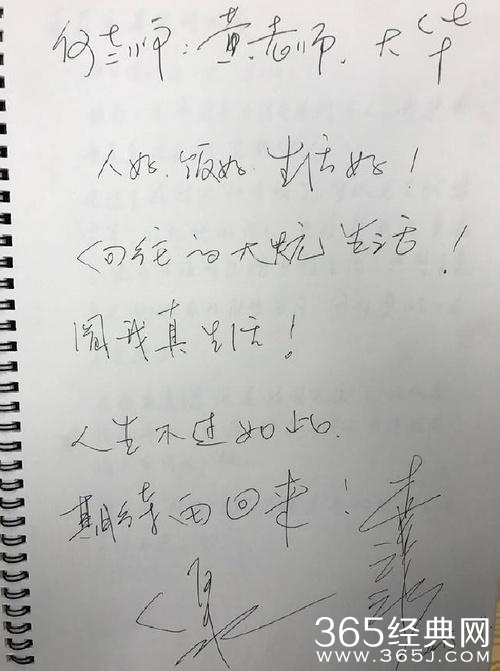 何老师:黄老师、大华
人好、饭好、生活好!
向往的大炕生活!
我真生活!
人生不过如此.
期待再回来!
365经典网
WWW.365J.COM